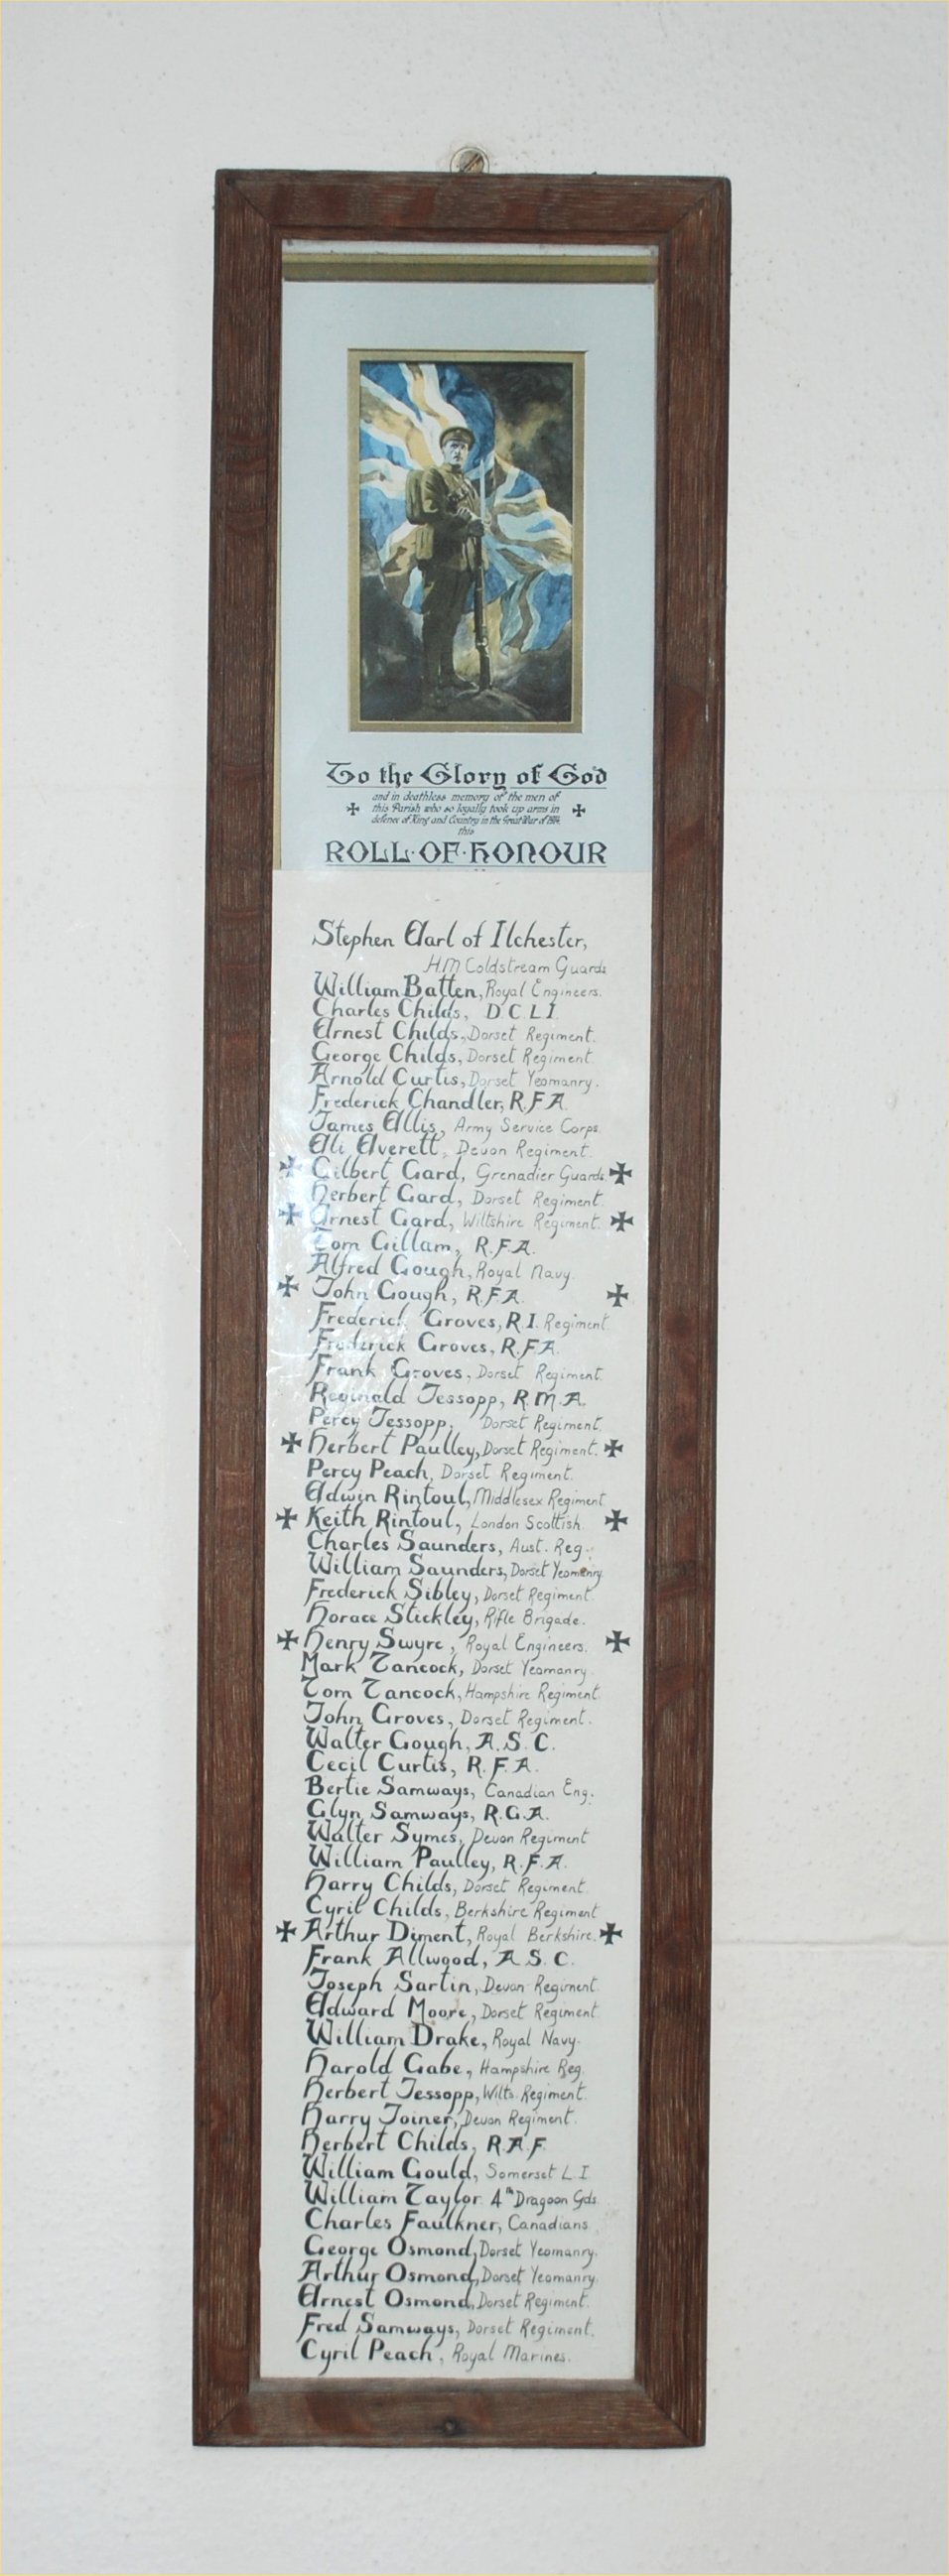 To the Glory of God
and in deathless memory of the men of
✠ this Parish who so loyally took up arms in ✠
defence of King and Country in the Great War of 1914
this
ROLL·OF·HONOUR
Stephen Earl of Ilchester,
H.M Coldstream Guards
William Batten, Royal Engineers.
Charles Childs, D C L I.
Ernest Childs, Dorset Regiment.
George Childs, Dorset Regiment.
Arnold Curtis, Dorset Yeomanry.
Frederick Chandler, R.F.A.
James Ellis, Army Service Corps.
Eli Everett, Devon Regiment.
✠ Gilbert Gard, Grenadier Guards. ✠
Herbert Gard, Dorset Regiment.
✠ Ernest Gard, Wiltshire Regiment. ✠
Tom Gillam, R.F.A.
Alfred Gough, Royal Navy.
✠ John Gough, R.F.A. ✠
Frederick Groves, R.I. Regiment.
Frederick Groves, R.F.A.
Frank Groves, Dorset Regiment.
Reginald Jessopp, R.M.A.
Percy Jessopp, Dorset Regiment.
✠ Herbert Paulley, Dorset Regiment. ✠
Percy Peach, Dorset Regiment.
Edwin Rintoul, Middlesex Regiment
✠ Keith Rintoul, London Scottish. ✠
Charles Saunders, Aust. Reg.
William Saunders, Dorset Yeomanry
Frederick Sibley, Dorset Regiment.
Horace Stickley, Rifle Brigade.
✠ Henry Swyre, Royal Engineers. ✠
Mark Tancock, Dorset Yeomanry.
Tom Tancock, Hampshire Regiment
John Groves, Dorset Regiment.
Walter Gough, A.S.C.
Cecil Curtis, R.F.A.
Bertie Samways, Canadian Eng.
Glyn Samways, R.G.A.
Walter Symes, Devon Regiment
William Paulley, R.F.A.
Harry Childs, Dorset Regiment.
Cyril Childs, Berkshire Regiment
✠ Arthur Diment, Royal Berkshire. ✠
Frank Allwood, A.S.C.
Joseph Sartin, Devon Regiment.
Edward Moore, Dorset Regiment
William Drake, Royal Navy.
Harold Gabe, Hampshire Reg.
Herbert Jessopp, Wilts. Regiment.
Harry Joiner, Devon Regiment.
Herbert Childs, R.A.F.
William Gould, Somerset L.I.
William Taylor 4th Dragoon Gds.
Charles Faulkner, Canadians.
George Osmond, Dorset Yeomanry.
Arthur Osmond, Dorset Yeomanry.
Ernest Osmond, Dorset Regiment.
Fred Samways, Dorset Regiment.
Cyril Peach, Royal Marines.